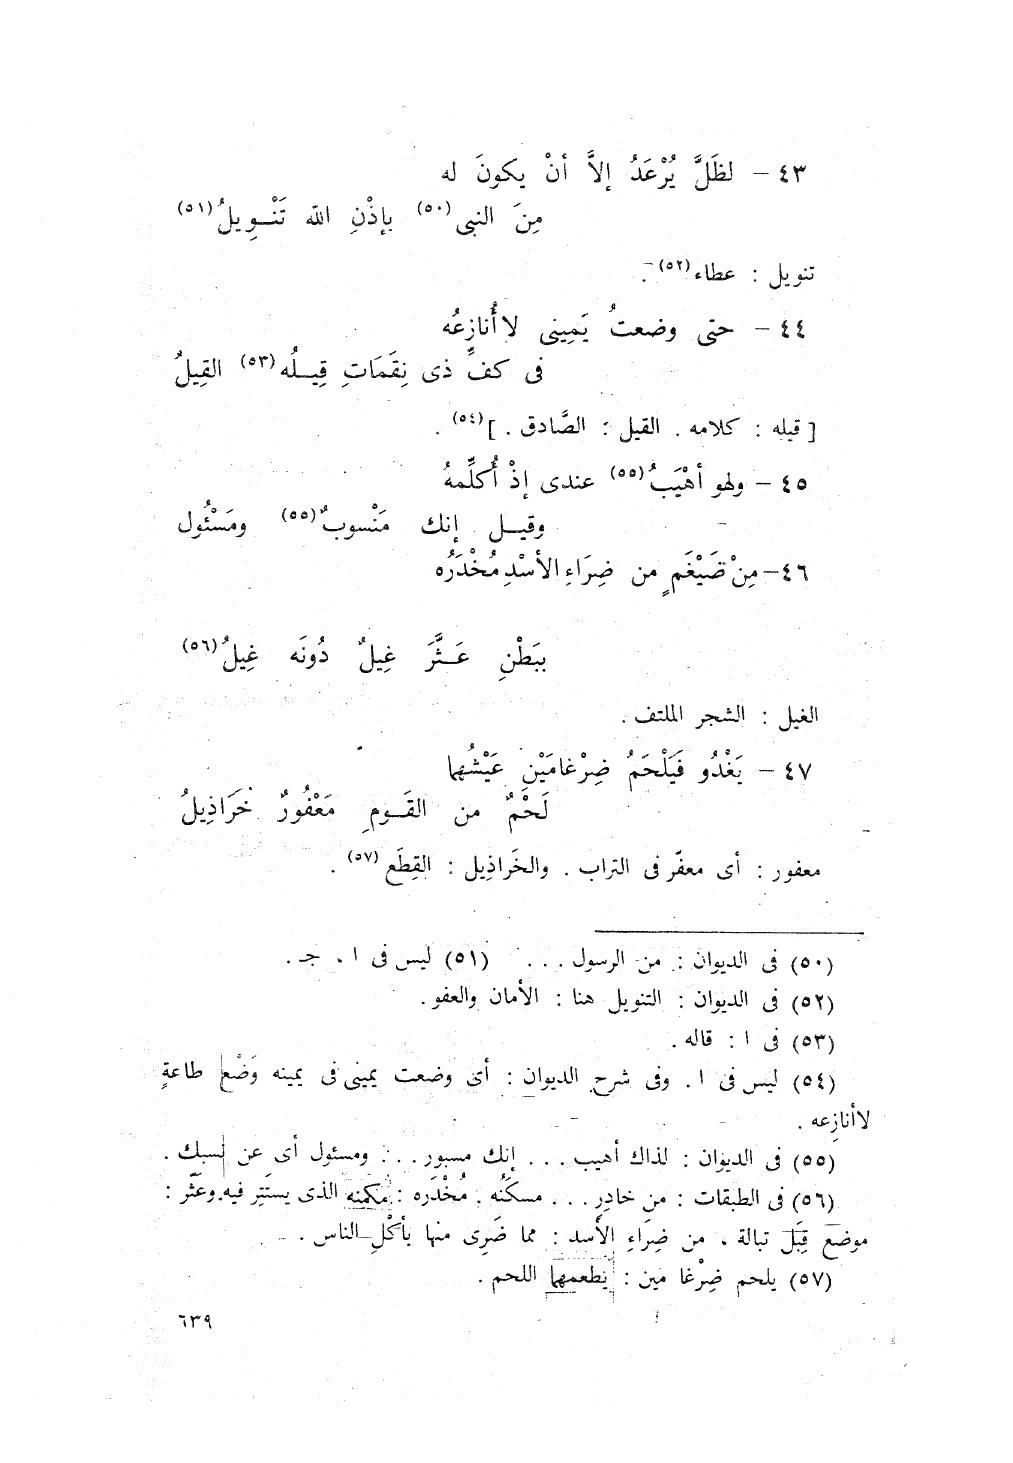 ٤٣ – لظَلَّ يُرْعَدُ إلاَّ أنْ يكونَ له
مِنَ النبى (٥٠) بإذْنِ الله تَنْـويلُ (٥١)
تنويل : عطاء (٥٢) .
٤٤ – حتى وضعتُ يَمِينى لا أُنازِعُه
فى كفِّ ذى نِقَمَاتِ قِيـلُه (٥٣) القِيلُ
[ قيله : كلامه . القيل : الصَّادق . ] (٥٤) .
٤٥ – ولهو أهْيَبُ (٥٥) عندى إذْ أُكلِّمهُ
وقيـل إنك مَنْسوبٌ (٥٥) ومَسْئُول
٤٦ – مِنْ ضَيْغَمٍ من ضِرَاءِ الأسْدِ مُخْدَرُه
ببَطْنِ عَـثَّرَ غِيلٌ دُونَه غِيلُ (٥٦)
الغيل : الشجر الملتف .
٤٧ – يَغْدُو فَيَلْحَمُ ضِرْغامَيْنِ عَيْشُهما
لَحْمٌ من القَـومِ مَعْفُورٌ خَرَاذِيلُ
معفور : أى معفّر فى التراب . والخَراذِيل : القِطَع (٥٧) .
(٥٠) فى الديوان : من الرسول . . . (٥١) ليس فى ا ، جـ .
(٥٢) فى الديوان : التنويل هنا : الأمان والعفو .
(٥٣) فى ا : قاله .
(٥٤) ليس فى ا . وفى شرح الديوان : أى وضعت يمينى فى يمينه وَضْع طاعةٍ
لا أنازِعه .
(٥٥) فى الديوان : لذاك أهيب . . . إنك مسبور . . . ومسئول أى عن نسبك .
(٥٦) فى الطبقات : من خادِرٍ . . . مسكَنُه . مُخْدَره : مكمنه الذى يستَتِر فيه . وعَثَّر :
موضع قِبَل تبالة . من ضِرَاءِ الأسد : مما ضَرِى منها بأكْلِ الناس .
(٥٧) يلحم ضِرْغا مين : يطعمهما اللحم .
٦٣٩